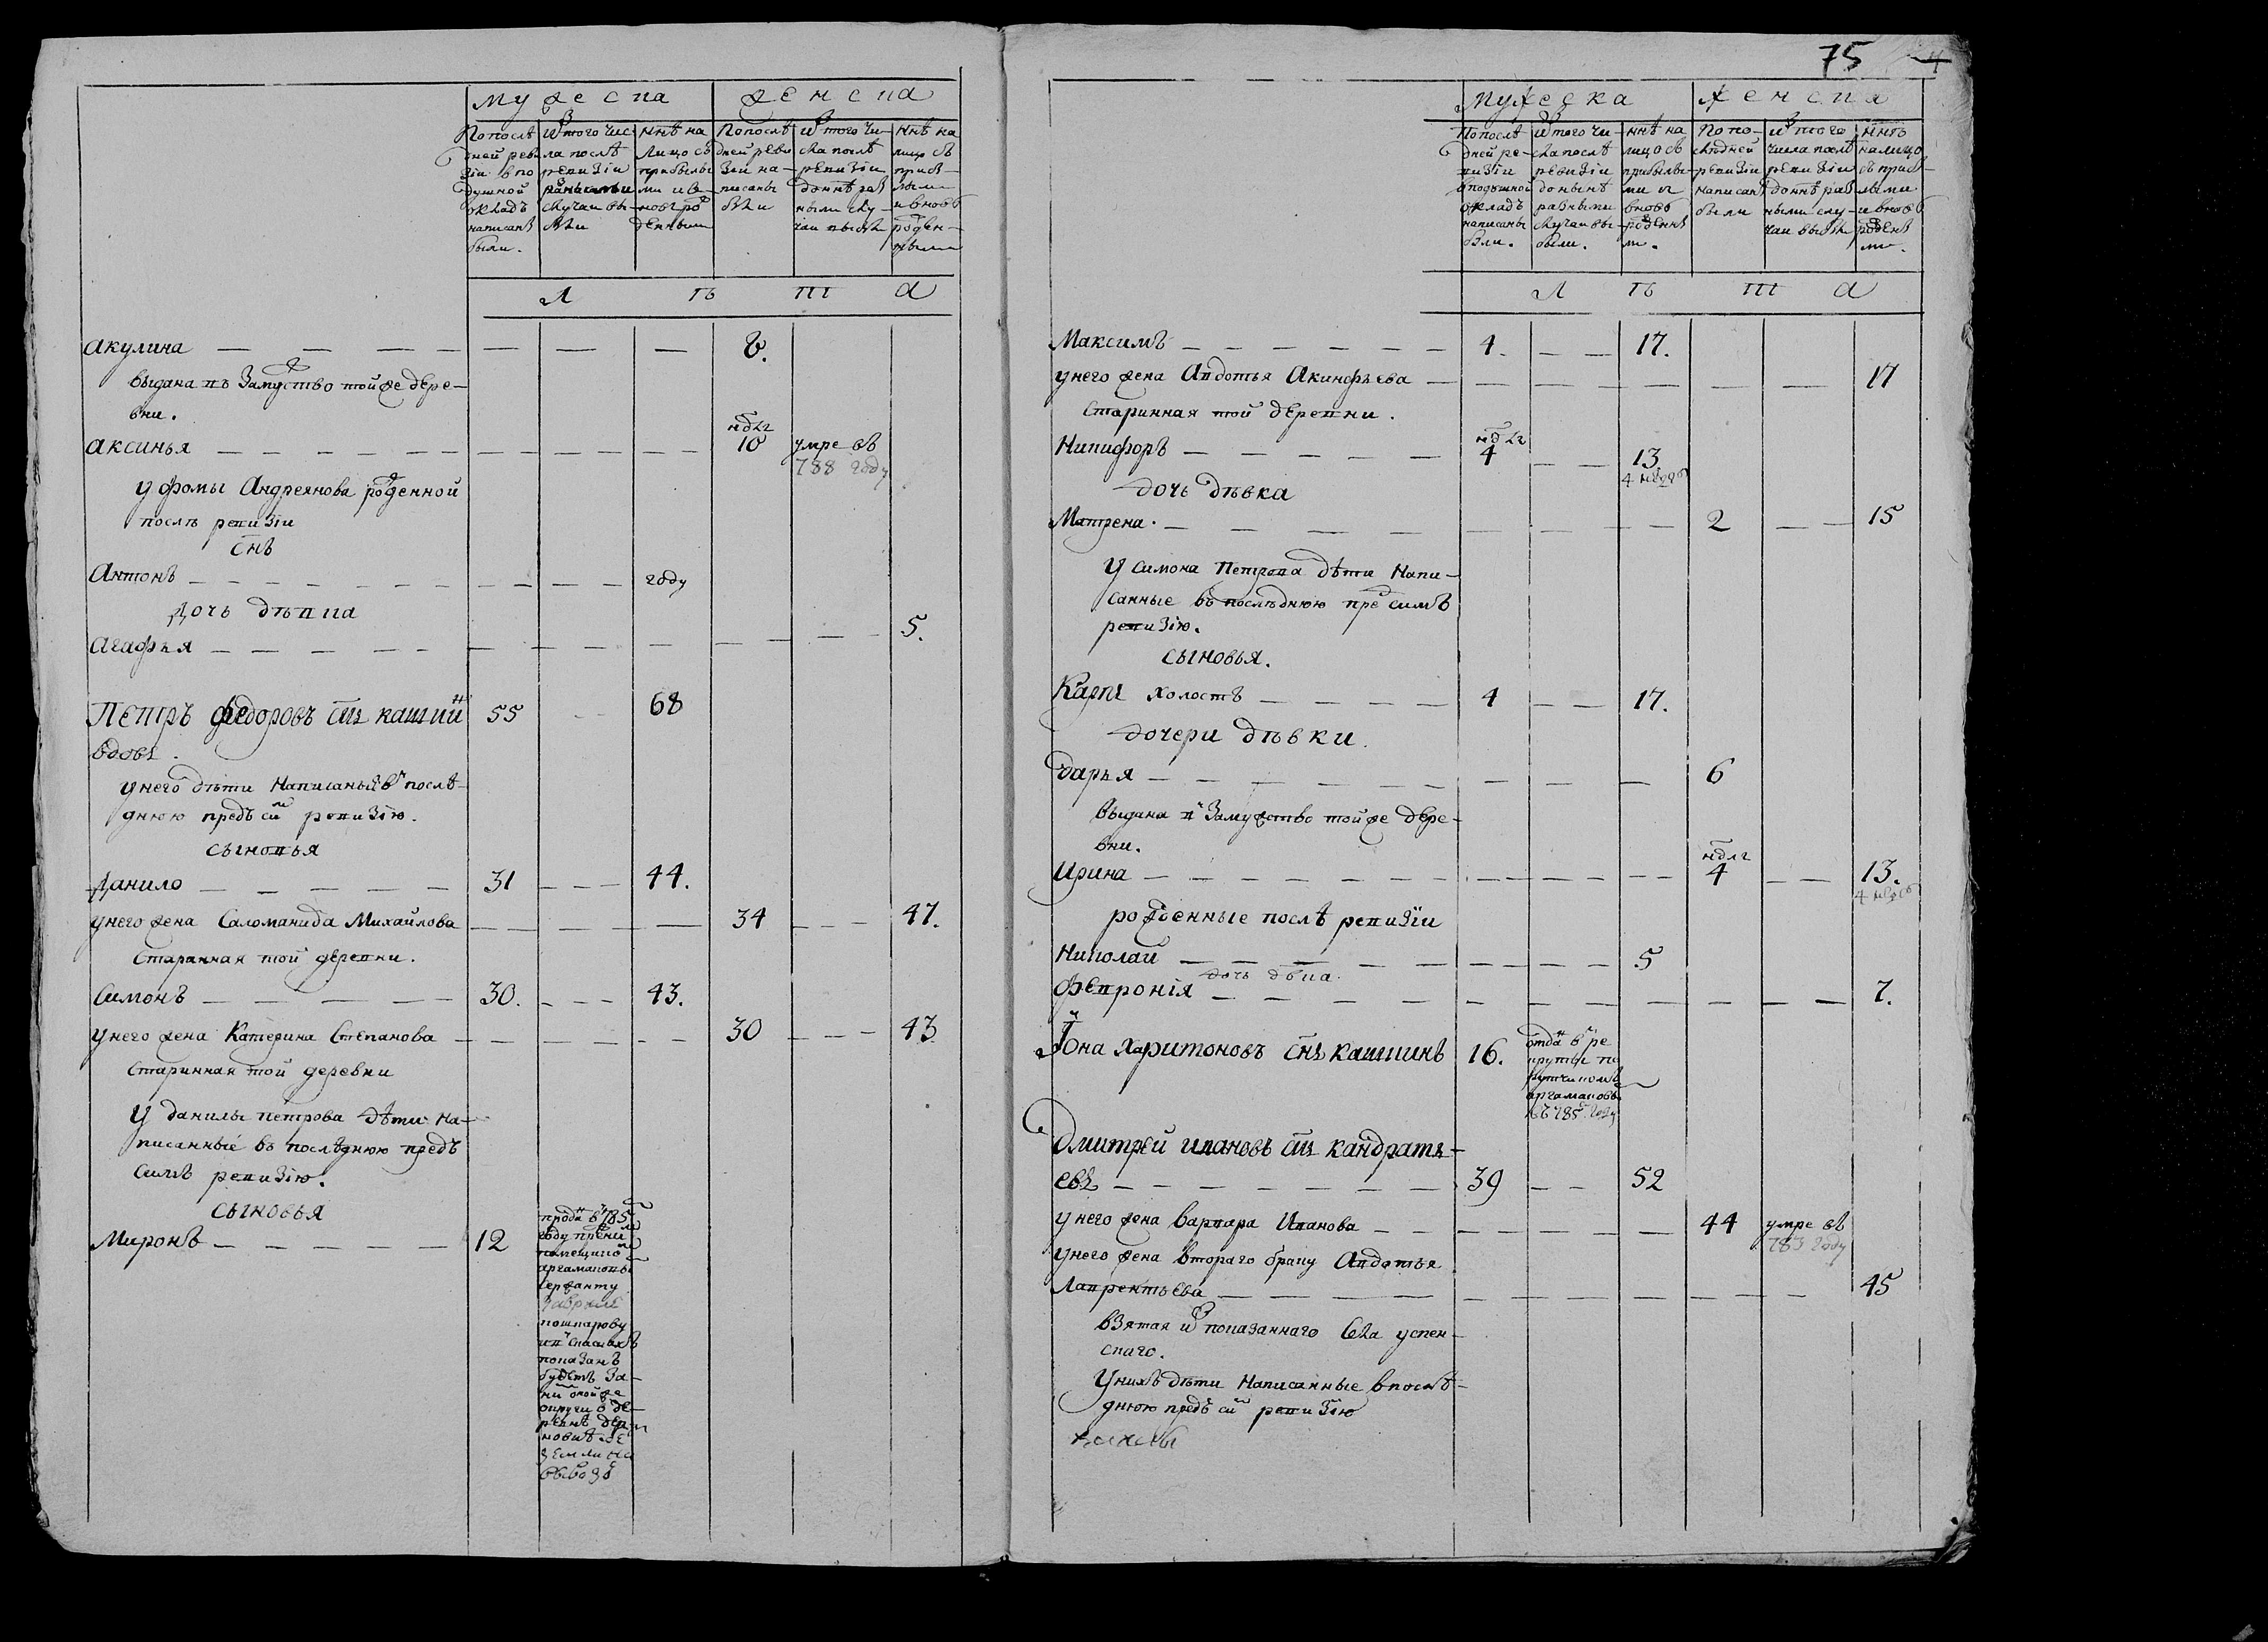 мужеска женска
По послѣ
дней реви
зіи в по
душной
окладъ
написаны
были.
Ис того чис
ла послѣ
ревизіи
разными
случаи вы
были
ннѣ на
лицо съ
прибылы
ми и в
новь ро
жденными
По послѣ
дней реви
зіи на
писаны
были
ис того чи
сла послѣ
ревизіи
до ннѣ раз
ными слу
чаи выбыли
ннѣ на
лицо съ
приб
лыми
и вновь
рожден
ными
л ѣ т а
Акулина — — — — — — — 8.
выдана въ замуство той же дере-
вни.
Аксинья — — — — — — — — ндлъ 10 умре въ 788 году
у Фомы Андреянова рожденной
послѣ ревизіи
снъ
Антонъ — — — — — — — году
дочь дѣвка
Агафья — — — — — — — — 5.
Петръ Федоровъ снъ кашинъ 55 — 68
вдовъ.
у него дѣти написаный в послѣ-
днюю предъ сим ревизію.
сыновья
Данило — — — — — 31 — — — 44.
у него жена Саломанида Михайлова — — — — 34 — — — 47.
старинная той деревни.
Симонъ — — — — — 30. — — — 43.
у него жена Катерина Степанова — — — — — 30 — — — 43
старинная той деревни
у данилы петрова дѣти на-
писанные въ послѣднюю предъ
симъ ревизію.
сыновья
Миронъ — — — — — — 12
прода в 785
году
помещико
аргамаковы
сержанту
75
Мужеска женска
По послѣ
дней ре
визіи
в подушной
окладъ
написаны
были.
ис того чи
сла послѣ
ревизіи
до нынѣ
разными
случаи вы
были.
ннѣ на
лицо съ
прибылы
ми и
вновь
рожденны
ми.
По по
слѣдней
ревизіи
написаны
были
ис того
числа послѣ
ревизіи
до ннѣ раз
ными слу
чаи выбыли
ннѣ
на лицо
съ приб
лыми
и вновь
рожден
ми.
л ѣ т а
Максимъ — — — — — — — 4. — — 17.
у него жена Авдотья Акинфьева — — — — — — — 17
старинная той деревни.
Никифоръ — — — — — ндлъ 4 — — 13
дочь дѣвка
Матрена. — — — — — — — — 2 — — 15
у симона Петрова дѣти напи-
санные въ послѣднюю пред симъ
ревизію.
сыновья.
Карпъ холостъ — — — — 4 — — 17.
дочери дѣвки.
дарья — — — — — — — — 6
выдана в замужство той же дере-
вни.
Ирина — — — — — — — — — ндлъ 4 — — 13.
рожденные послѣ ревизіи
Николай — — — — — — — — 5
дочь дѣвка
Февронія — — — — — — — — — — 7.
Иона Харитоновъ снъ кашинъ 16.
отдан в ре
круты
аргамаковы
въ 785 году
Дмитрей ивановъ снъ кандрать-
евъ — — — — — — — 39 — — 52
у него жена варвара Иванова — — — — — — 44 умре въ 783 году
у него жена втораго браку Авдотья
Лаврентьева — — — — — — — — — — 45
взятая ис показаннаго села успен-
скаго.
у нихъ дѣти написанные в послѣ-
днюю предъ сим ревизію